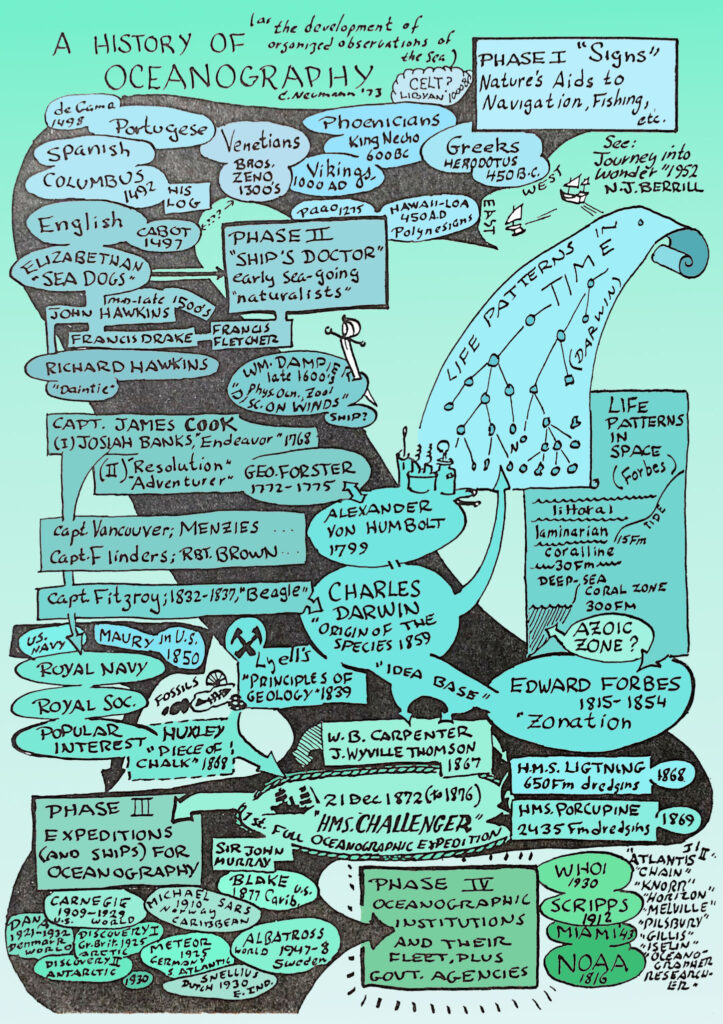 A HISTORY OF
OCEANOGRAPHY
(as the development of
organized observations of
the Sea)
C. Neumann '73
CELT?
LIBYAN
PHASE I "Signs"
Nature's Aids to
Navigation, Fishing,
etc.
de Gama
1498
Portugese
Spanish
COLUMBUS
1492
HIS
LOG
Venetians
BROS.
ZENO
1300's
Phoenicians
King Necho
600 BC
Vikings
1000 AD
Greeks
HERODOTUS
450 B.C.
PaaO 1275
HAWAII-LOA
450 A.D
Polynesians
EAST
WEST
See:
Journey into
wonder "1952
N.J. BERRILL
English
CABOT
1497
ELIZABETHAN
"SEA DOGS"
PHASE II
"SHIP'S DOCTOR"
early sea-going
"naturalists"
mid-late 1500's
JOHN HAWKINS
FRANCIS DRAKE
FRANCIS
FLETCHER
RICHARD HAWKINS
"Daintie"
WM. DAMPIER
late 1600's
Phys. Ocn., Zool
Sc. ON WINDS"
SHIP?
LIFE PATTERNS IN
TIME
(DARWIN)
NOW
CAPT. JAMES COOK
(I) JOSIAH BANKS, "Endeavor" 1768
(II) "Resolution"
"Adventurer"
GEO. FORSTER
1772-1775
LIFE
PATTERNS
IN
SPACE
(Forbes)
littoral
TIDE
laminarian
15 Fm
coralline
30 Fm
DEEP-SEA
CORAL ZONE
300 FM
AZOIC
ZONE?
ALEXANDER
VON HUMBOLT
1799
Capt Vancouver; MENZIES ...
Capt. Flinders; RBT. BROWN ...
Capt Fitzroy; 1832-1837, "Beagle"
CHARLES
DARWIN
"ORIGIN OF THE
SPECIES 1859
US.
NAVY
MAURY in U.S.
1850
ROYAL NAVY
ROYAL SOC.
POPULAR
INTEREST
Lyell's
"PRINCIPLES
OF
GEOLOGY" 1839
"IDEA BASE"
EDWARD FORBES
1815-1854
"Zonation
FOSSILS
HUXLEY
"PIECE OF
CHALK" 1868
W. B. CARPENTER
J. WYVILLE THOMSON
1867
H.M.S. LIGTNING
650 Fm dredgins
1868
HMS. PORCUPINE
2435 Fm dredgins
1869
21 Dec 1872 (to 1876)
"HMS. CHALLENGER"
1st FULL OCEANOGRAPHIC EXPEDITION
PHASE III
EXPEDITIONS
(AND SHIPS) FOR
OCEANOGRAPHY
SIR JOHN
MURRAY
BLAKE U.S.
1877 Carib.
CARNEGIE
1909-1929
U.S. WORLD
MICHAEL SARS
1910
Norway
CARIBBEAN
DANA
1921-1932
Denmark
WORLD
DISCOVERY I
Gr. Brit. 1925
ARCTIC
DISCOVERY II
ANTARCTIC
1930
METEOR
1925
GERMANY
S ATLANTIC
ALBATROSS
WORLD 1947-8
Sweden
Snellius
DUTCH 1930
E. IND.
PHASE IV
OCEANOGRAPHIC
INSTITUTIONS
AND THEIR
FLEET, PLUS
GOVT. AGENCIES
WHOI
1930
SCRIPPS
1912
MIAMI '43
NOAA
1816
ATLANTIS II"
"CHAIN"
"KNORR"
"HORIZON
"MELVILLE"
"PILSBURY"
"GILLIS"
"ISELIN"
"OCEANO-
GRAPHER
RESEARCH-
ER"